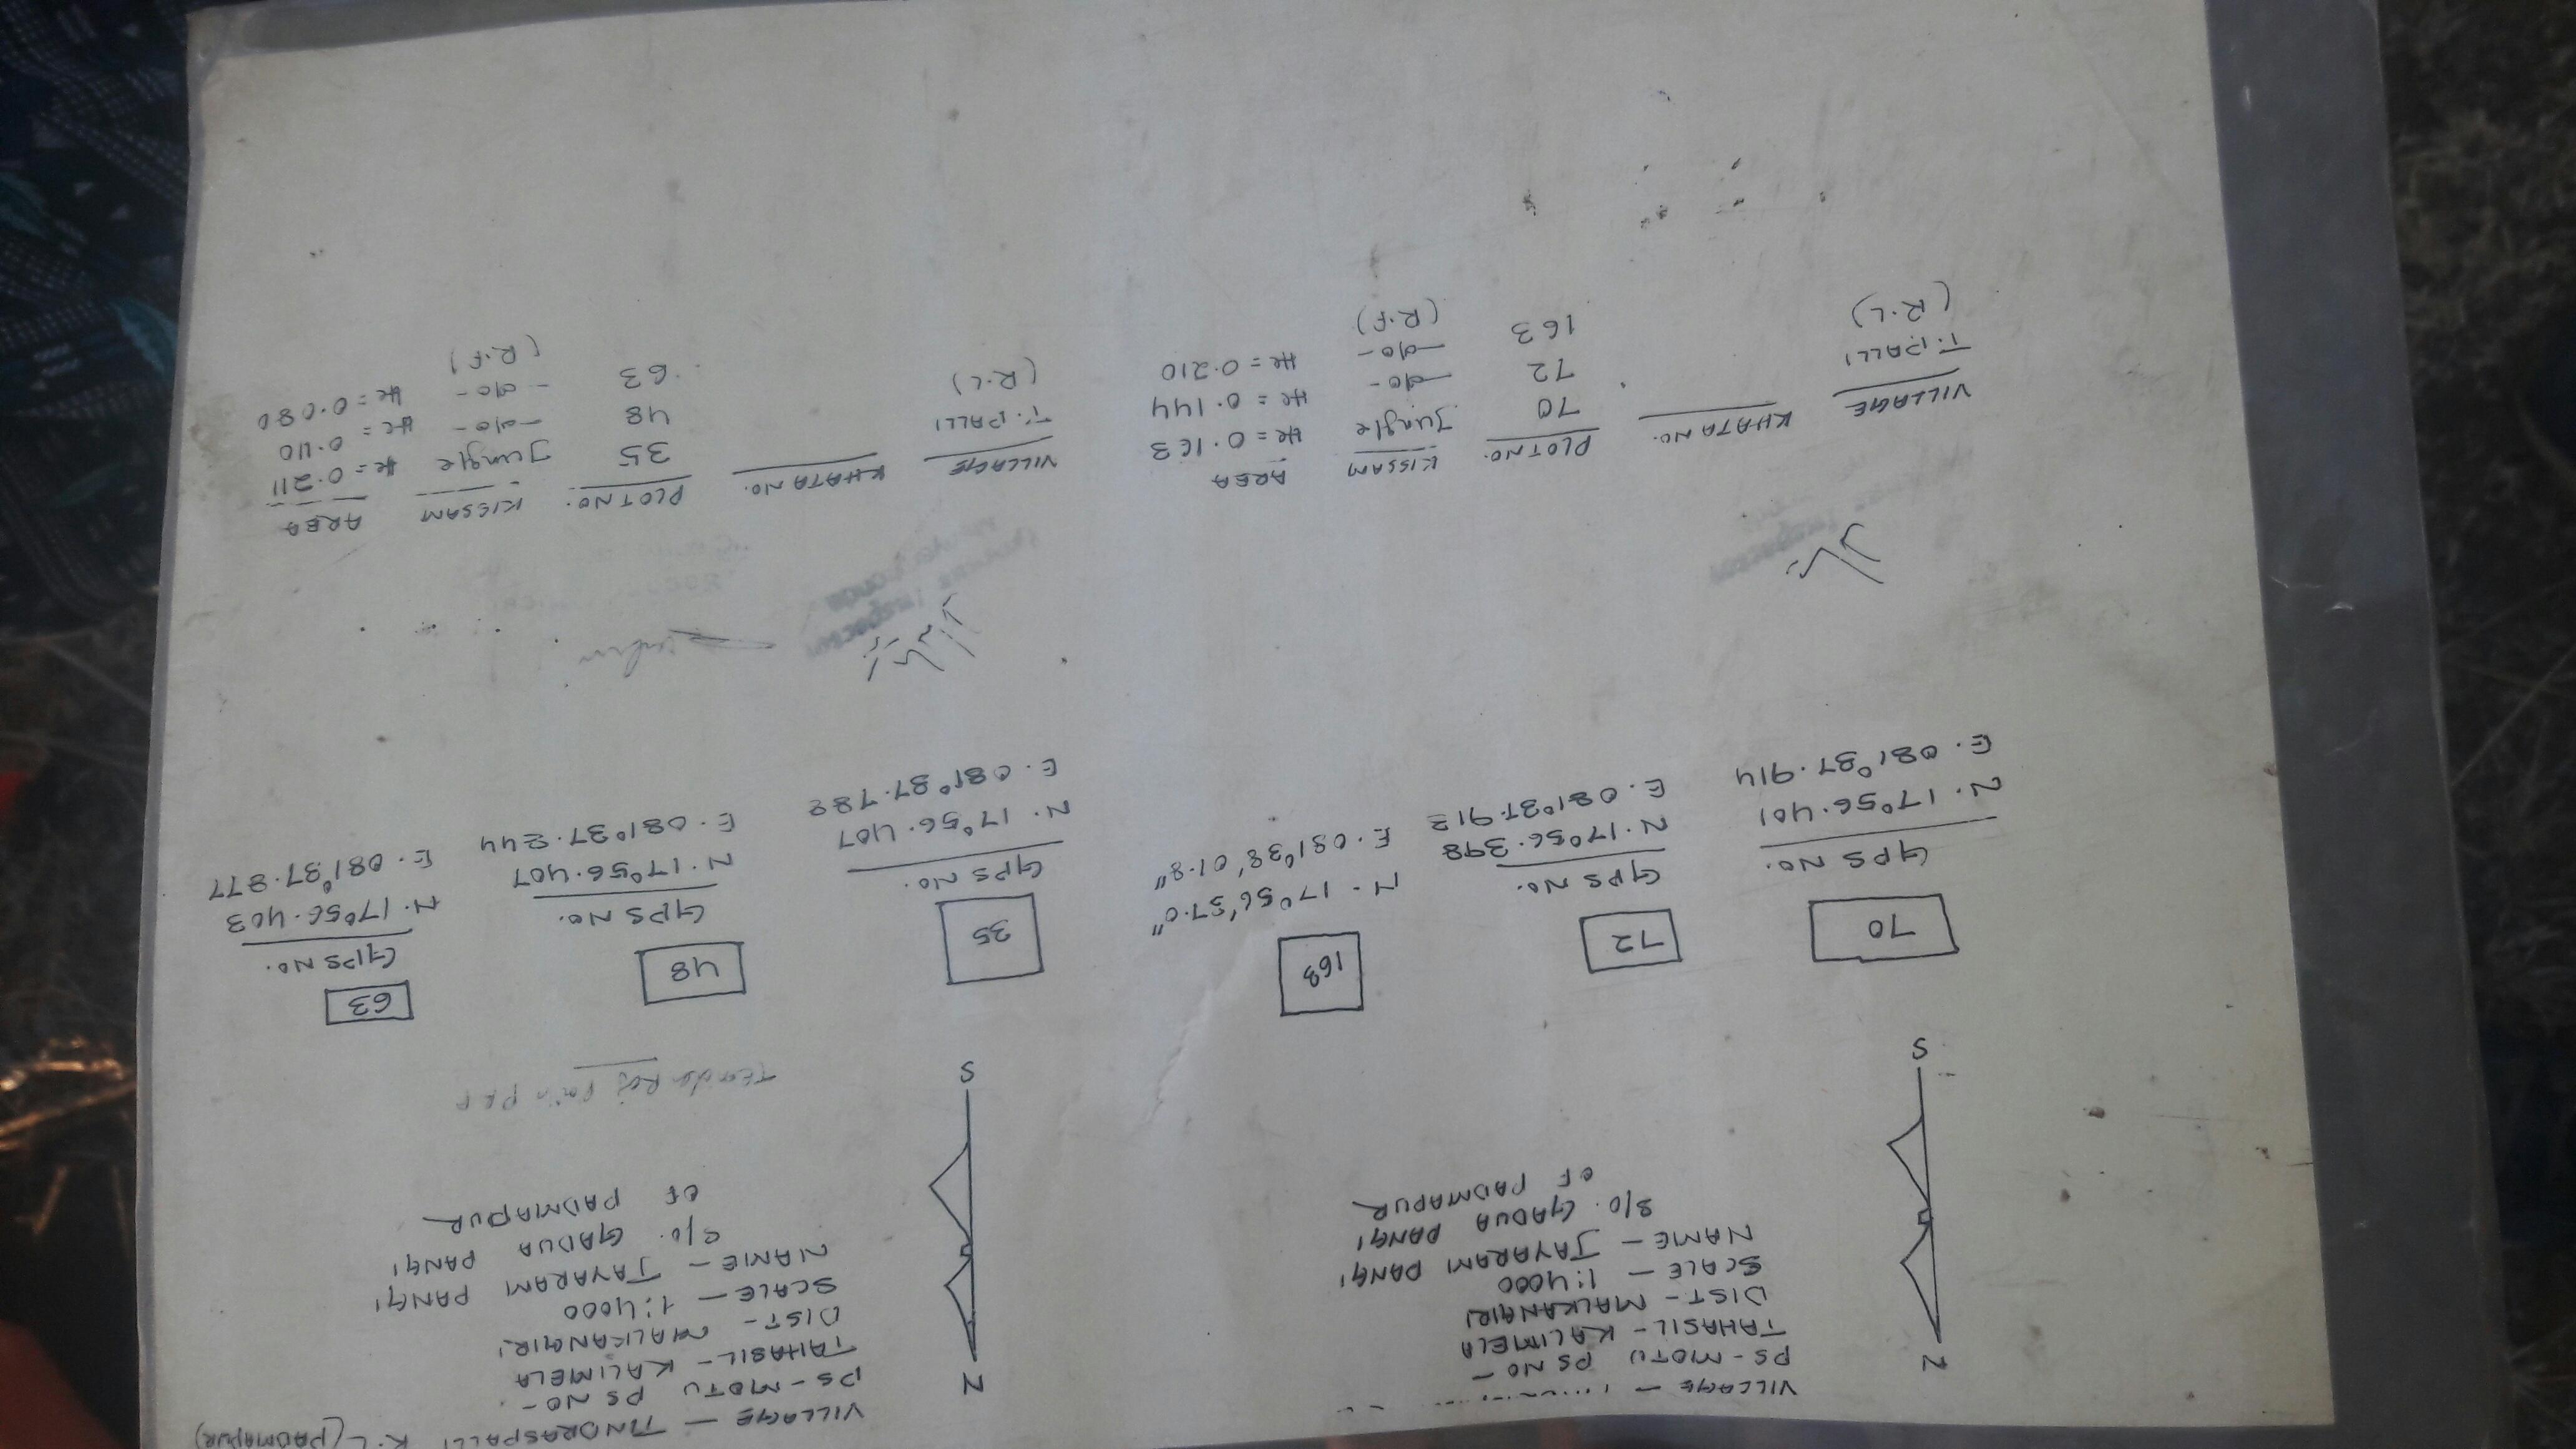 VILLAGE —
PS - MOTU PS NO -
TAHASIL - KALIMELA
DIST - MALKANGIRI
SCALE — 1:4000
NAME — JAYARAM PANGI
S/O. GADUA PANGI
OF PADMAPUR
N
S
70
GPS NO.
N. 17°56.401
E. 081°37.914
72
GPS NO.
N. 17°56.398
E. 081°37.913
163
N - 17°56'37.0"
E. 081°38'01.8"
VILLAGE KHATA NO. PLOT NO. KISSAM AREA
T. PALLI 70 Jungle Hc = 0.163
(R.L) 72 -do- Hc = 0.144
163 -do- Hc = 0.210
(R.F)
VILLAGE — TINDRASPALLI R.L (PADMAPUR)
PS - MOTU PS NO -
TAHASIL - KALIMELA
DIST - MALKANGIRI
SCALE — 1:4000
NAME — JAYARAM PANGI
S/O. GADUA PANGI
OF PADMAPUR
N
S
35
GPS NO.
N. 17°56.407
E. 081°37.782
48
GPS NO.
N. 17°56.407
E. 081°37.844
63
GPS NO.
N. 17°56.403
E. 081°37.877
VILLAGE KHATA NO. PLOT NO. KISSAM AREA
T. PALLI 35 Jungle Hc = 0.211
(R.L) 48 -do- Hc = 0.110
63 -do- Hc = 0.080
(R.F)